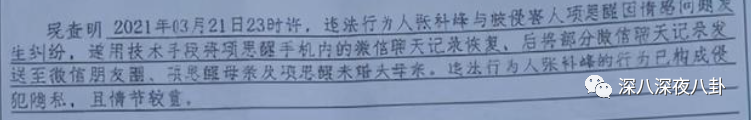 现查明 2021年03月21日23时许，违法行为人张科峰与被侵害人项思醒因情感问题发
生纠纷，遂用技术手段将项思醒手机内的微信聊天记录恢复，后将部分微信聊天记录发
送至微信朋友圈、项思醒母亲及项思醒未婚夫母亲。违法行为人张科峰的行为已构成侵
犯隐私，且情节较重。
深八深夜八卦